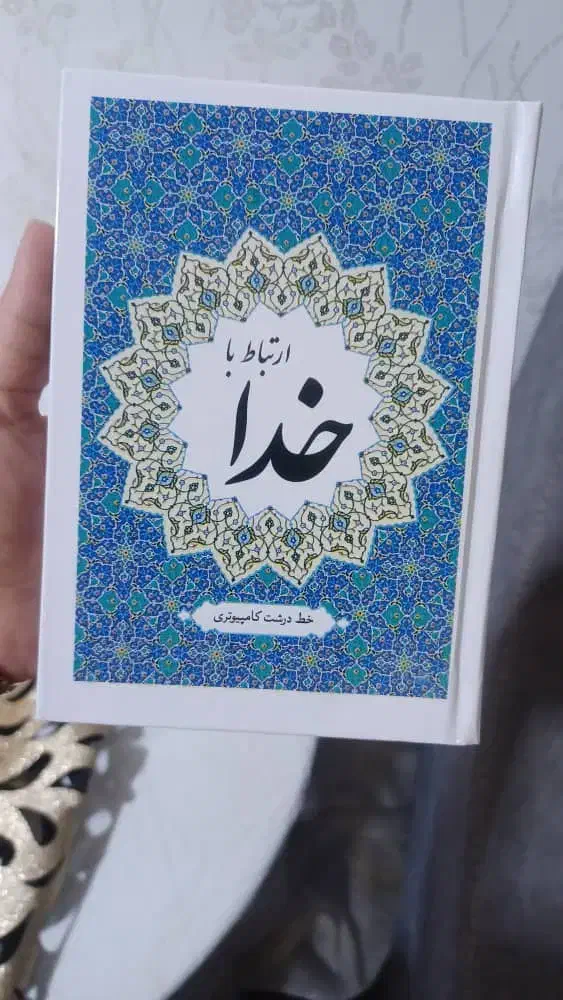 ارتباط با
خدا
خط درشت کامپیوتری